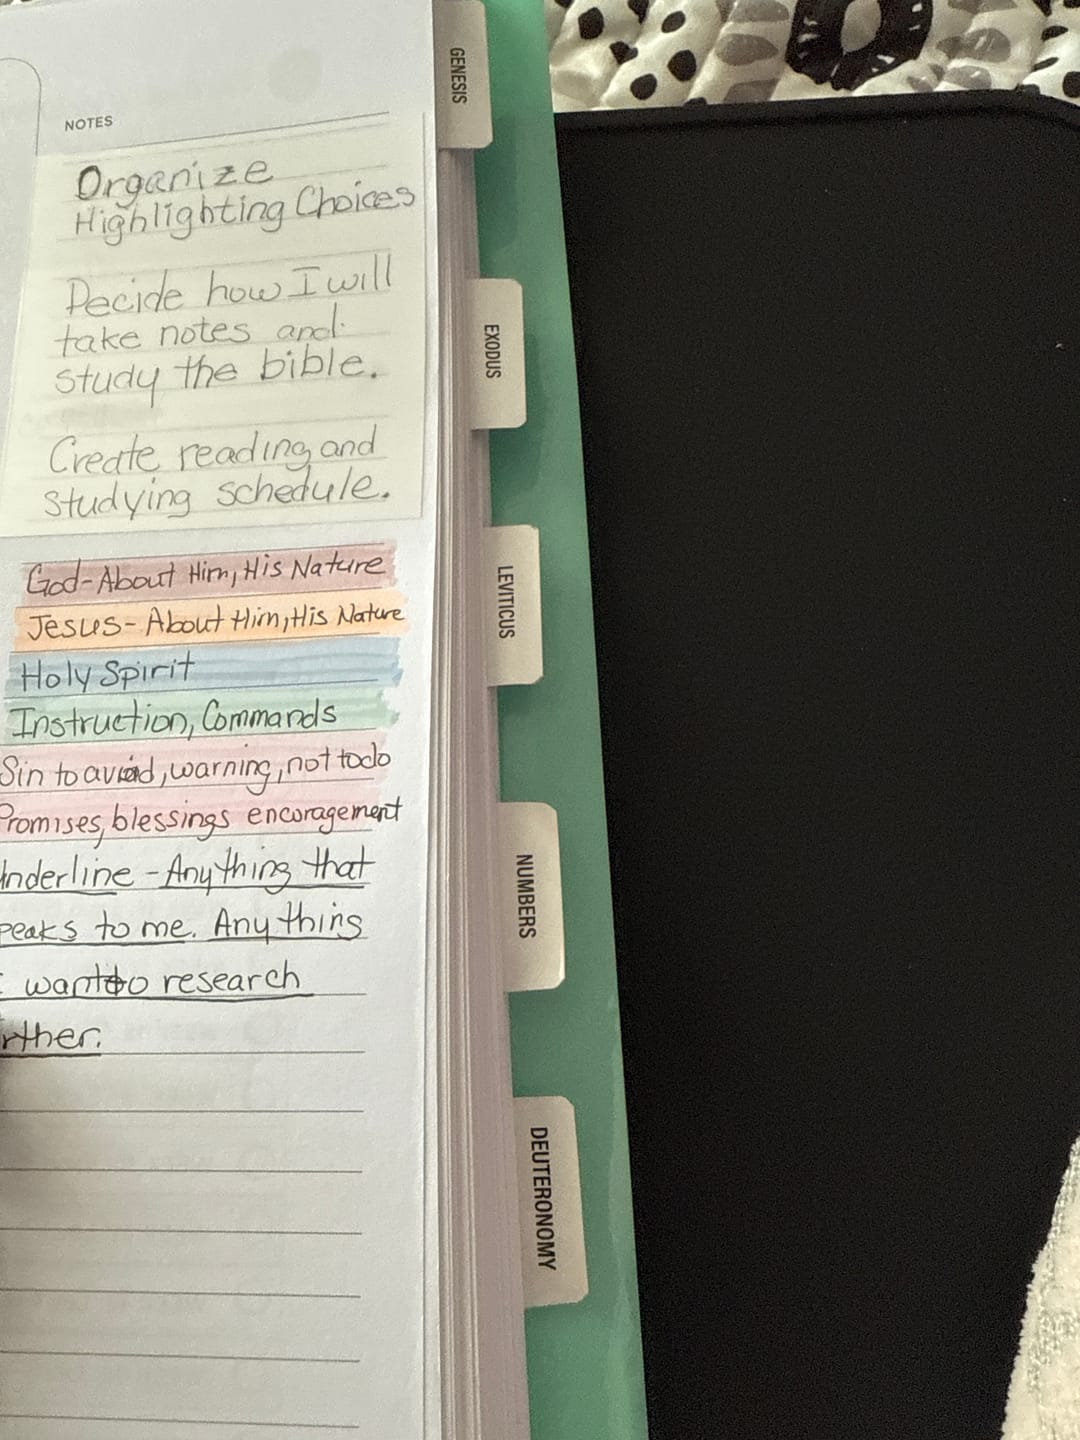 NOTES
Organize
Highlighting Choices
Decide how I will
take notes and
study the bible.
Create reading and
studying schedule.
God-About Him, His Nature
Jesus-About Him, His Nature
Holy Spirit
Instruction, Commands
Sin to avoid, warning, not to do
Promises, blessings encoragement
nderline - Anything that
peaks to me. Anything
I want to research
rther.
GENESIS
EXODUS
LEVITICUS
NUMBERS
DEUTERONOMY